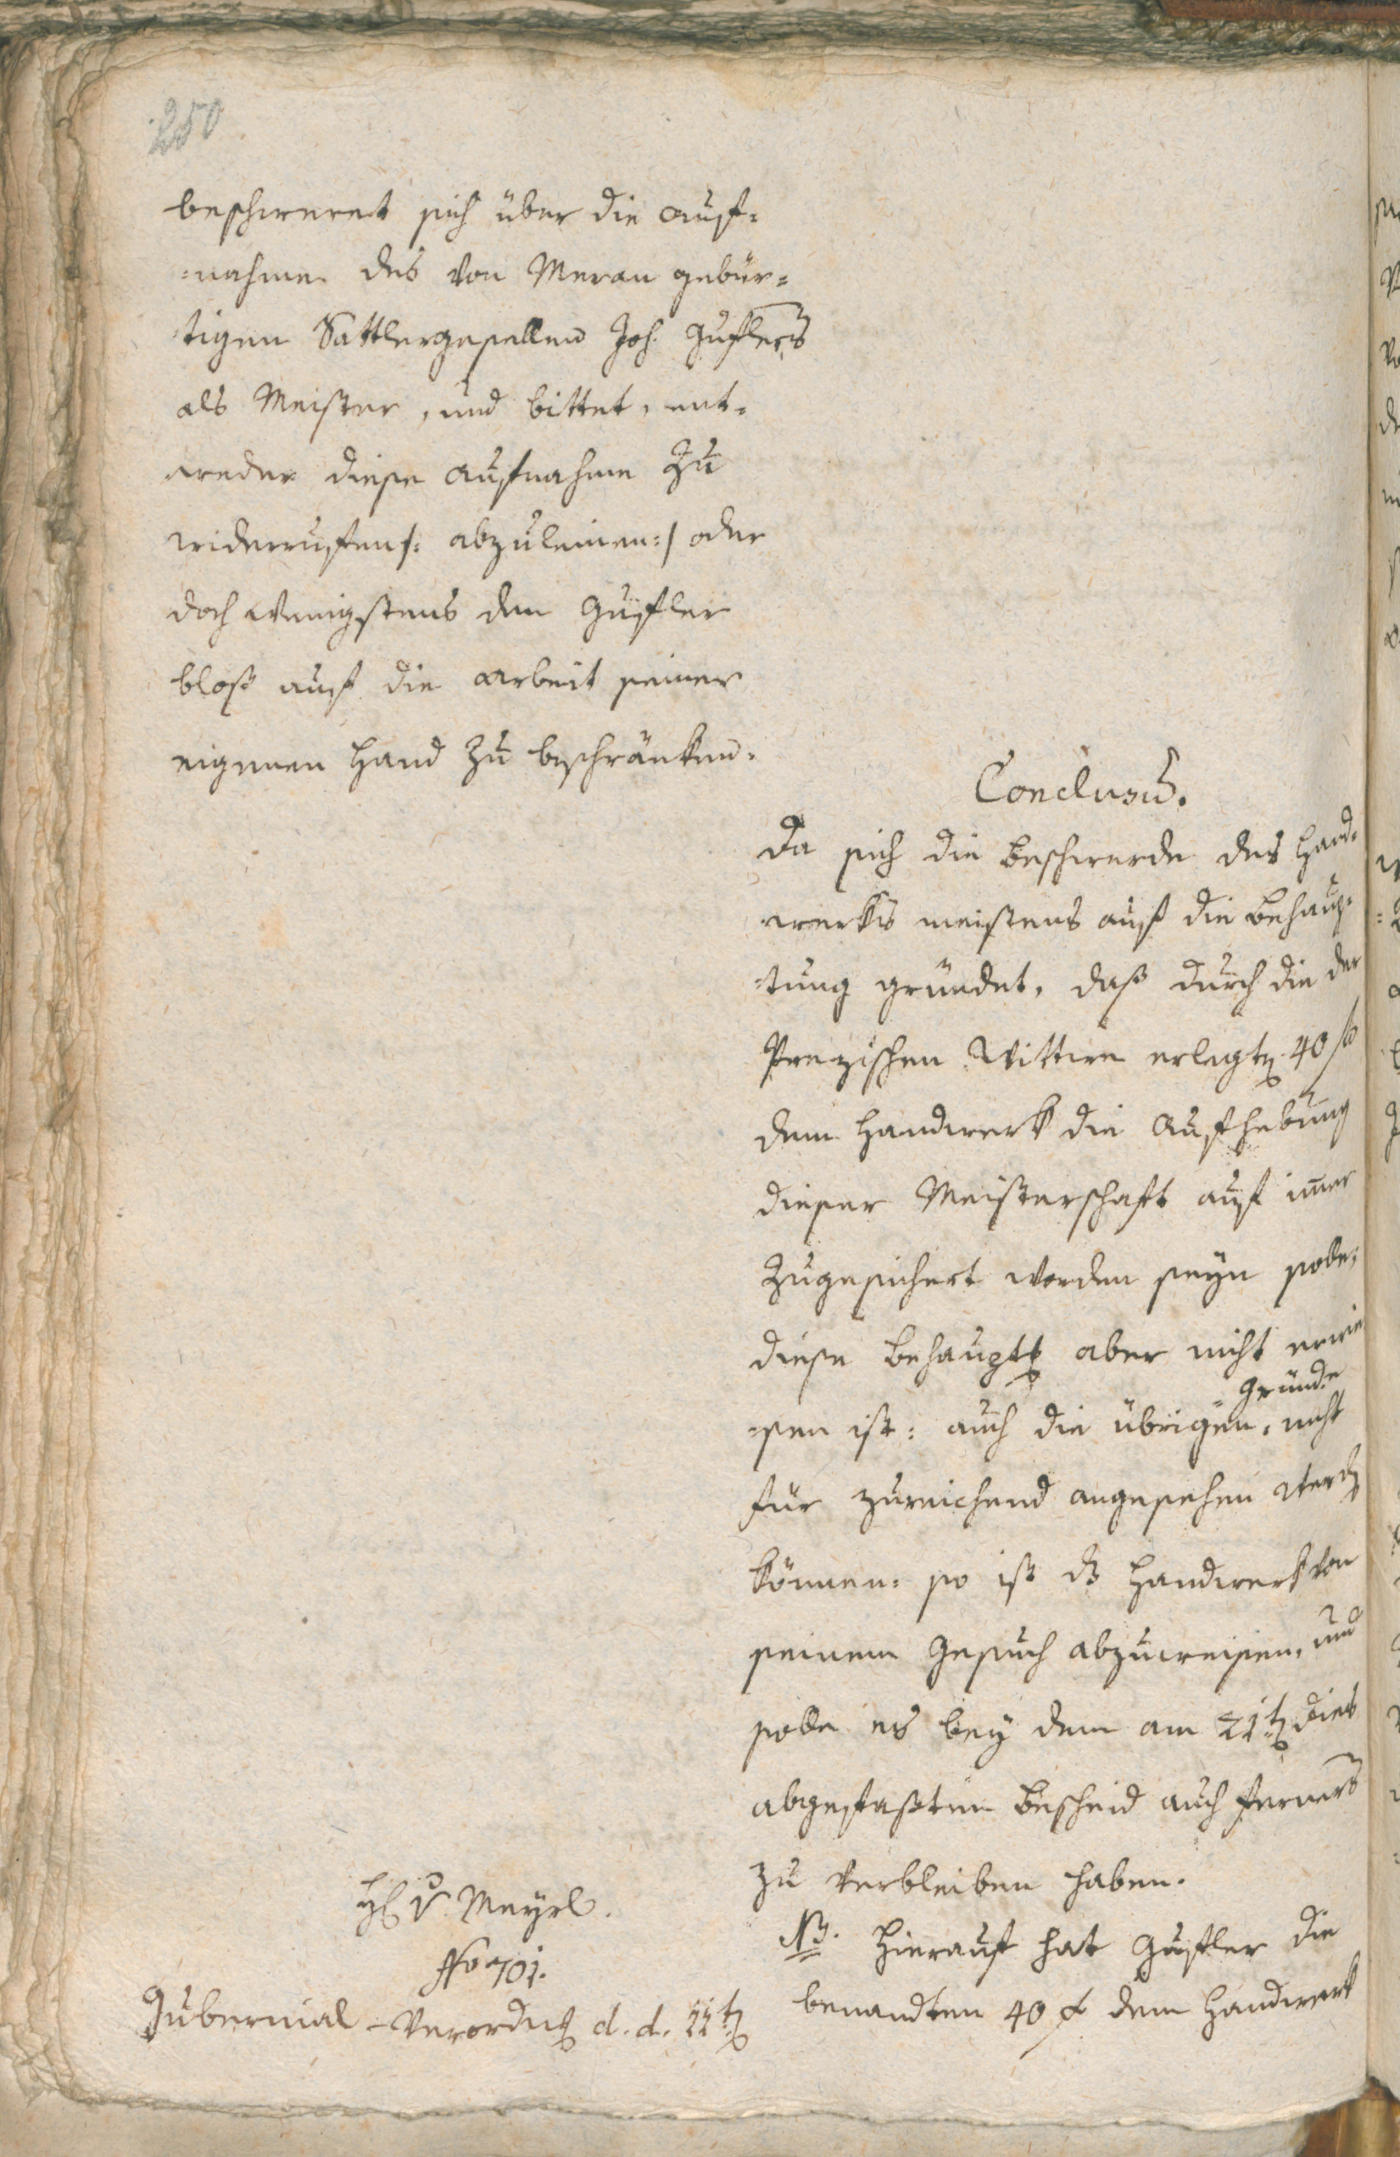 250
beschweret sich über die Auf=
=nahme des von Meran gebür=
tigen Sattlergesellen Joh. Guflers
als Meister, und bittet, ent=
weder diese Aufnahme zu
widerrufen /: abzuleinen :/ oder
doch wenigstens den Gufler
bloß auf die Arbeit seiner
eigenen Hand zu beschränken.
Conclusũ.
Da sich die Beschwerde des Hand=
werks meistens auf die Behaup=
=tung gründet, daß durch die der
Prezischen Wittwe erlegt 40 f
dem Handwerk die Aufhebung
dieser Meisterschaft auf im̄er
zugesichert worden seyn solle,
diese Behauptg aber nicht erwie
=sen ist: auch die übrigen Gründe nicht
für zureichend angesehen werdn
können: so ist ds Handwerk von
seinem Gesuch abzuweisen, und
solle es bey dem am 21tn dies
abgefaßten Bescheid auch ferners
zu verbleiben haben.
NB. Hierauf hat Gufler die
benandten 40 f dem Handwerk
H. v. Meyrl.
No 701.
Gubernial-Verordng d. d. 22tn